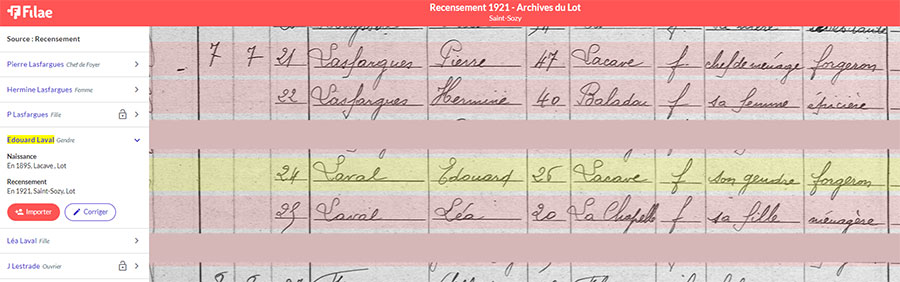 Filae
Recensement 1921 - Archives du Lot
Saint-Sozy
Source : Recensement
Pierre Lasfargues Chef de Foyer
Hermine Lasfargues Femme
P Lasfargues Fille
Edouard Laval Gendre
Naissance
En 1895, Lacave., Lot
Recensement
En 1921, Saint-Sozy, Lot
Importer Corriger
Léa Laval Fille
J Lestrade Ouvrier
7 7 21 Lasfargues Pierre 47 Lacave f chef de ménage forgeron
22 Lasfargues Hermine 40 Baladou f sa femme épicière
24 Laval Edouard 26 Lacave f son gendre forgeron
25 Laval Léa 20 La Chapelle f sa fille ménagère